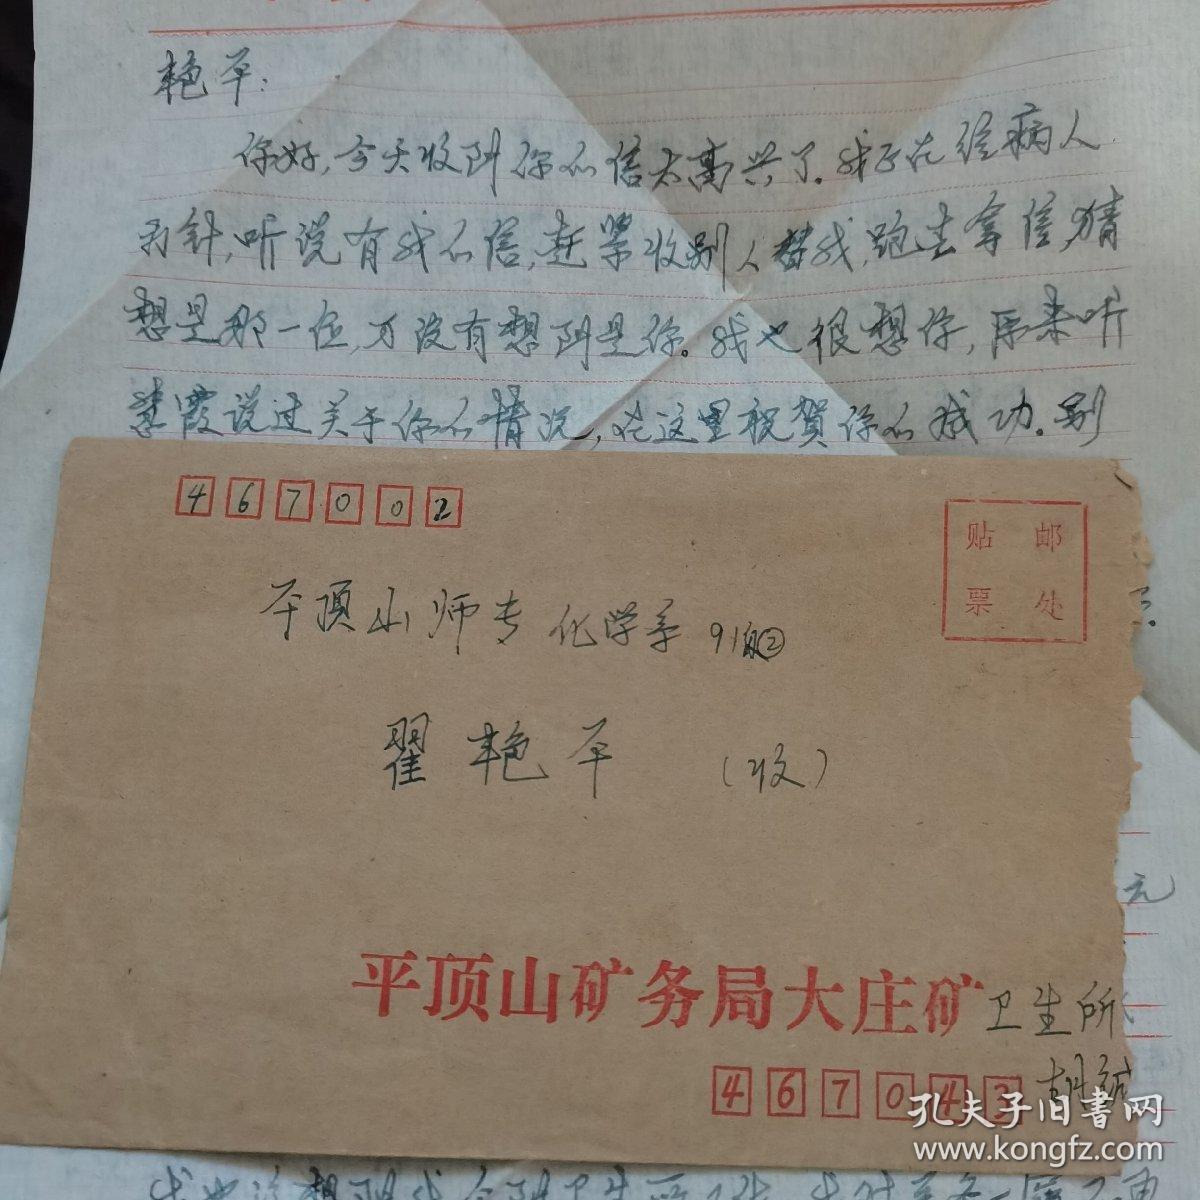 艳平:
你好,今天收到你的信太高兴了。我正在给病人
打针,听说有我的信,赶紧收别人替我,跑去拿信,猜
想是那一位,可没有想到是你。我也很想你,原来听
霞说过关于你的情况,在这里祝贺你的成功。别
467002
贴邮
票处
平顶山师专化学系 91级②
翟艳平 (收)
元
平顶山矿务局大庄矿卫生所
467043 胡缄
孔夫子旧书网
www.kongfz.com
我也没想到我会到卫生所